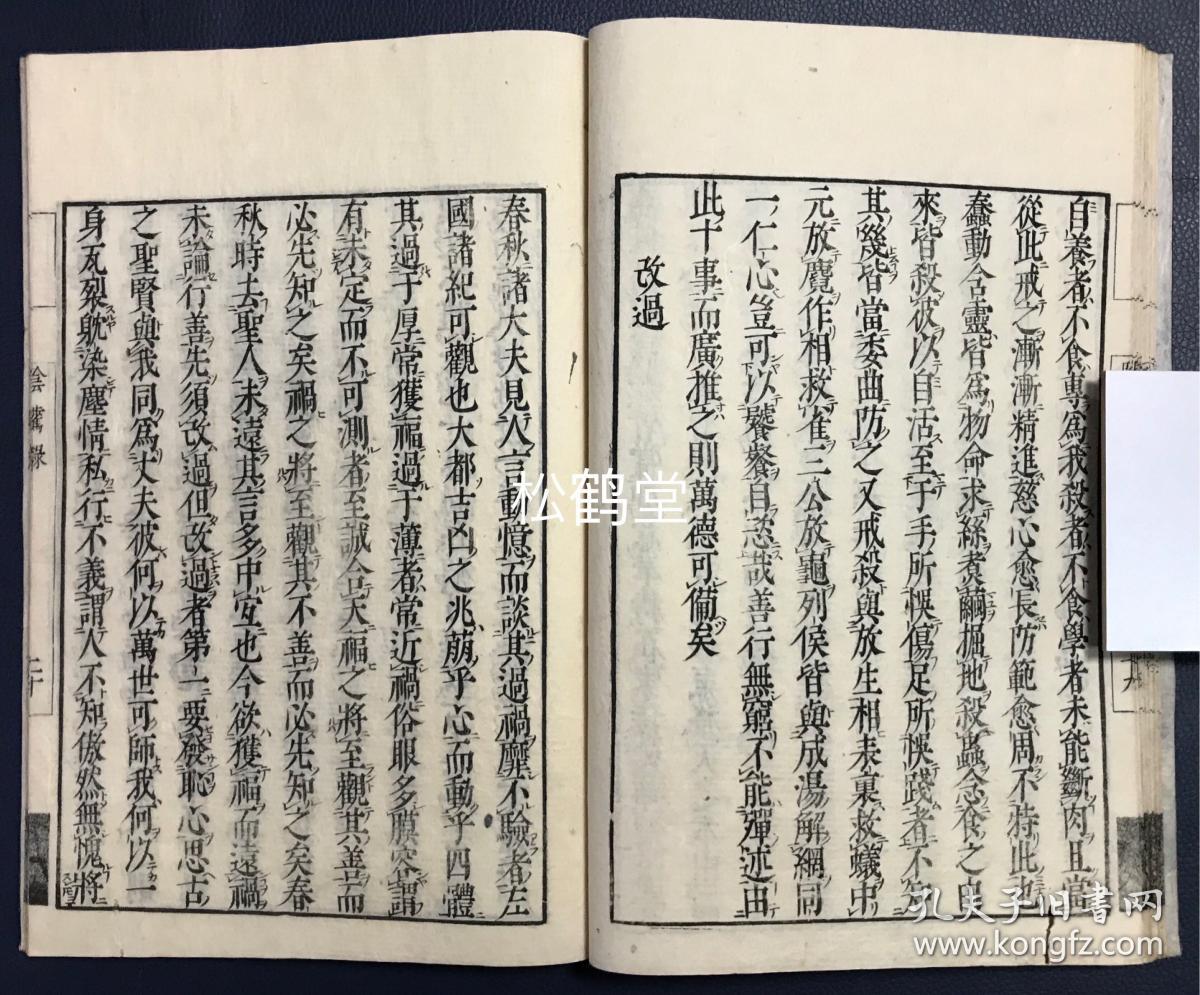 自養者不食專為我殺者不食學者未能斷肉且當
從此戒之漸漸精進慈心愈長防範愈周不特此也
蠢動含靈皆為物命求絲煑繭掘地殺蟲念食之由
來皆殺彼以自活至于手所悞傷足所悞踐者不知
其幾皆當委曲防之又戒殺與放生相表裏救蟻中
元放麑作相救雀三公放龜列侯皆與成湯解網同
一仁心豈可以饕餮自恣哉善行無窮不能殫述由
此十事而廣推之則萬德可備矣
改過
春秋諸大夫見人言動憶而談其過禍靡不驗者左
國諸紀可觀也大都吉凶之兆萠乎心而動乎四體
其過于厚常獲福過于薄者常近禍俗眼多膜突謂
有未定而不可測者至誠合天福之將至觀其善而
必先知之矣禍之將至觀其不善而必先知之矣春
秋時去聖人未遠其言多中宐也今欲獲福而遠禍
未論行善先須改過但改過者第一要發恥心思古
之聖賢與我同為丈夫彼何以萬世可師我何以一
身瓦裂躭染塵情私行不義謂人不知傲然無愧將
陰隲錄
二十
松鹤堂
孔夫子旧书网
www.kongfz.com